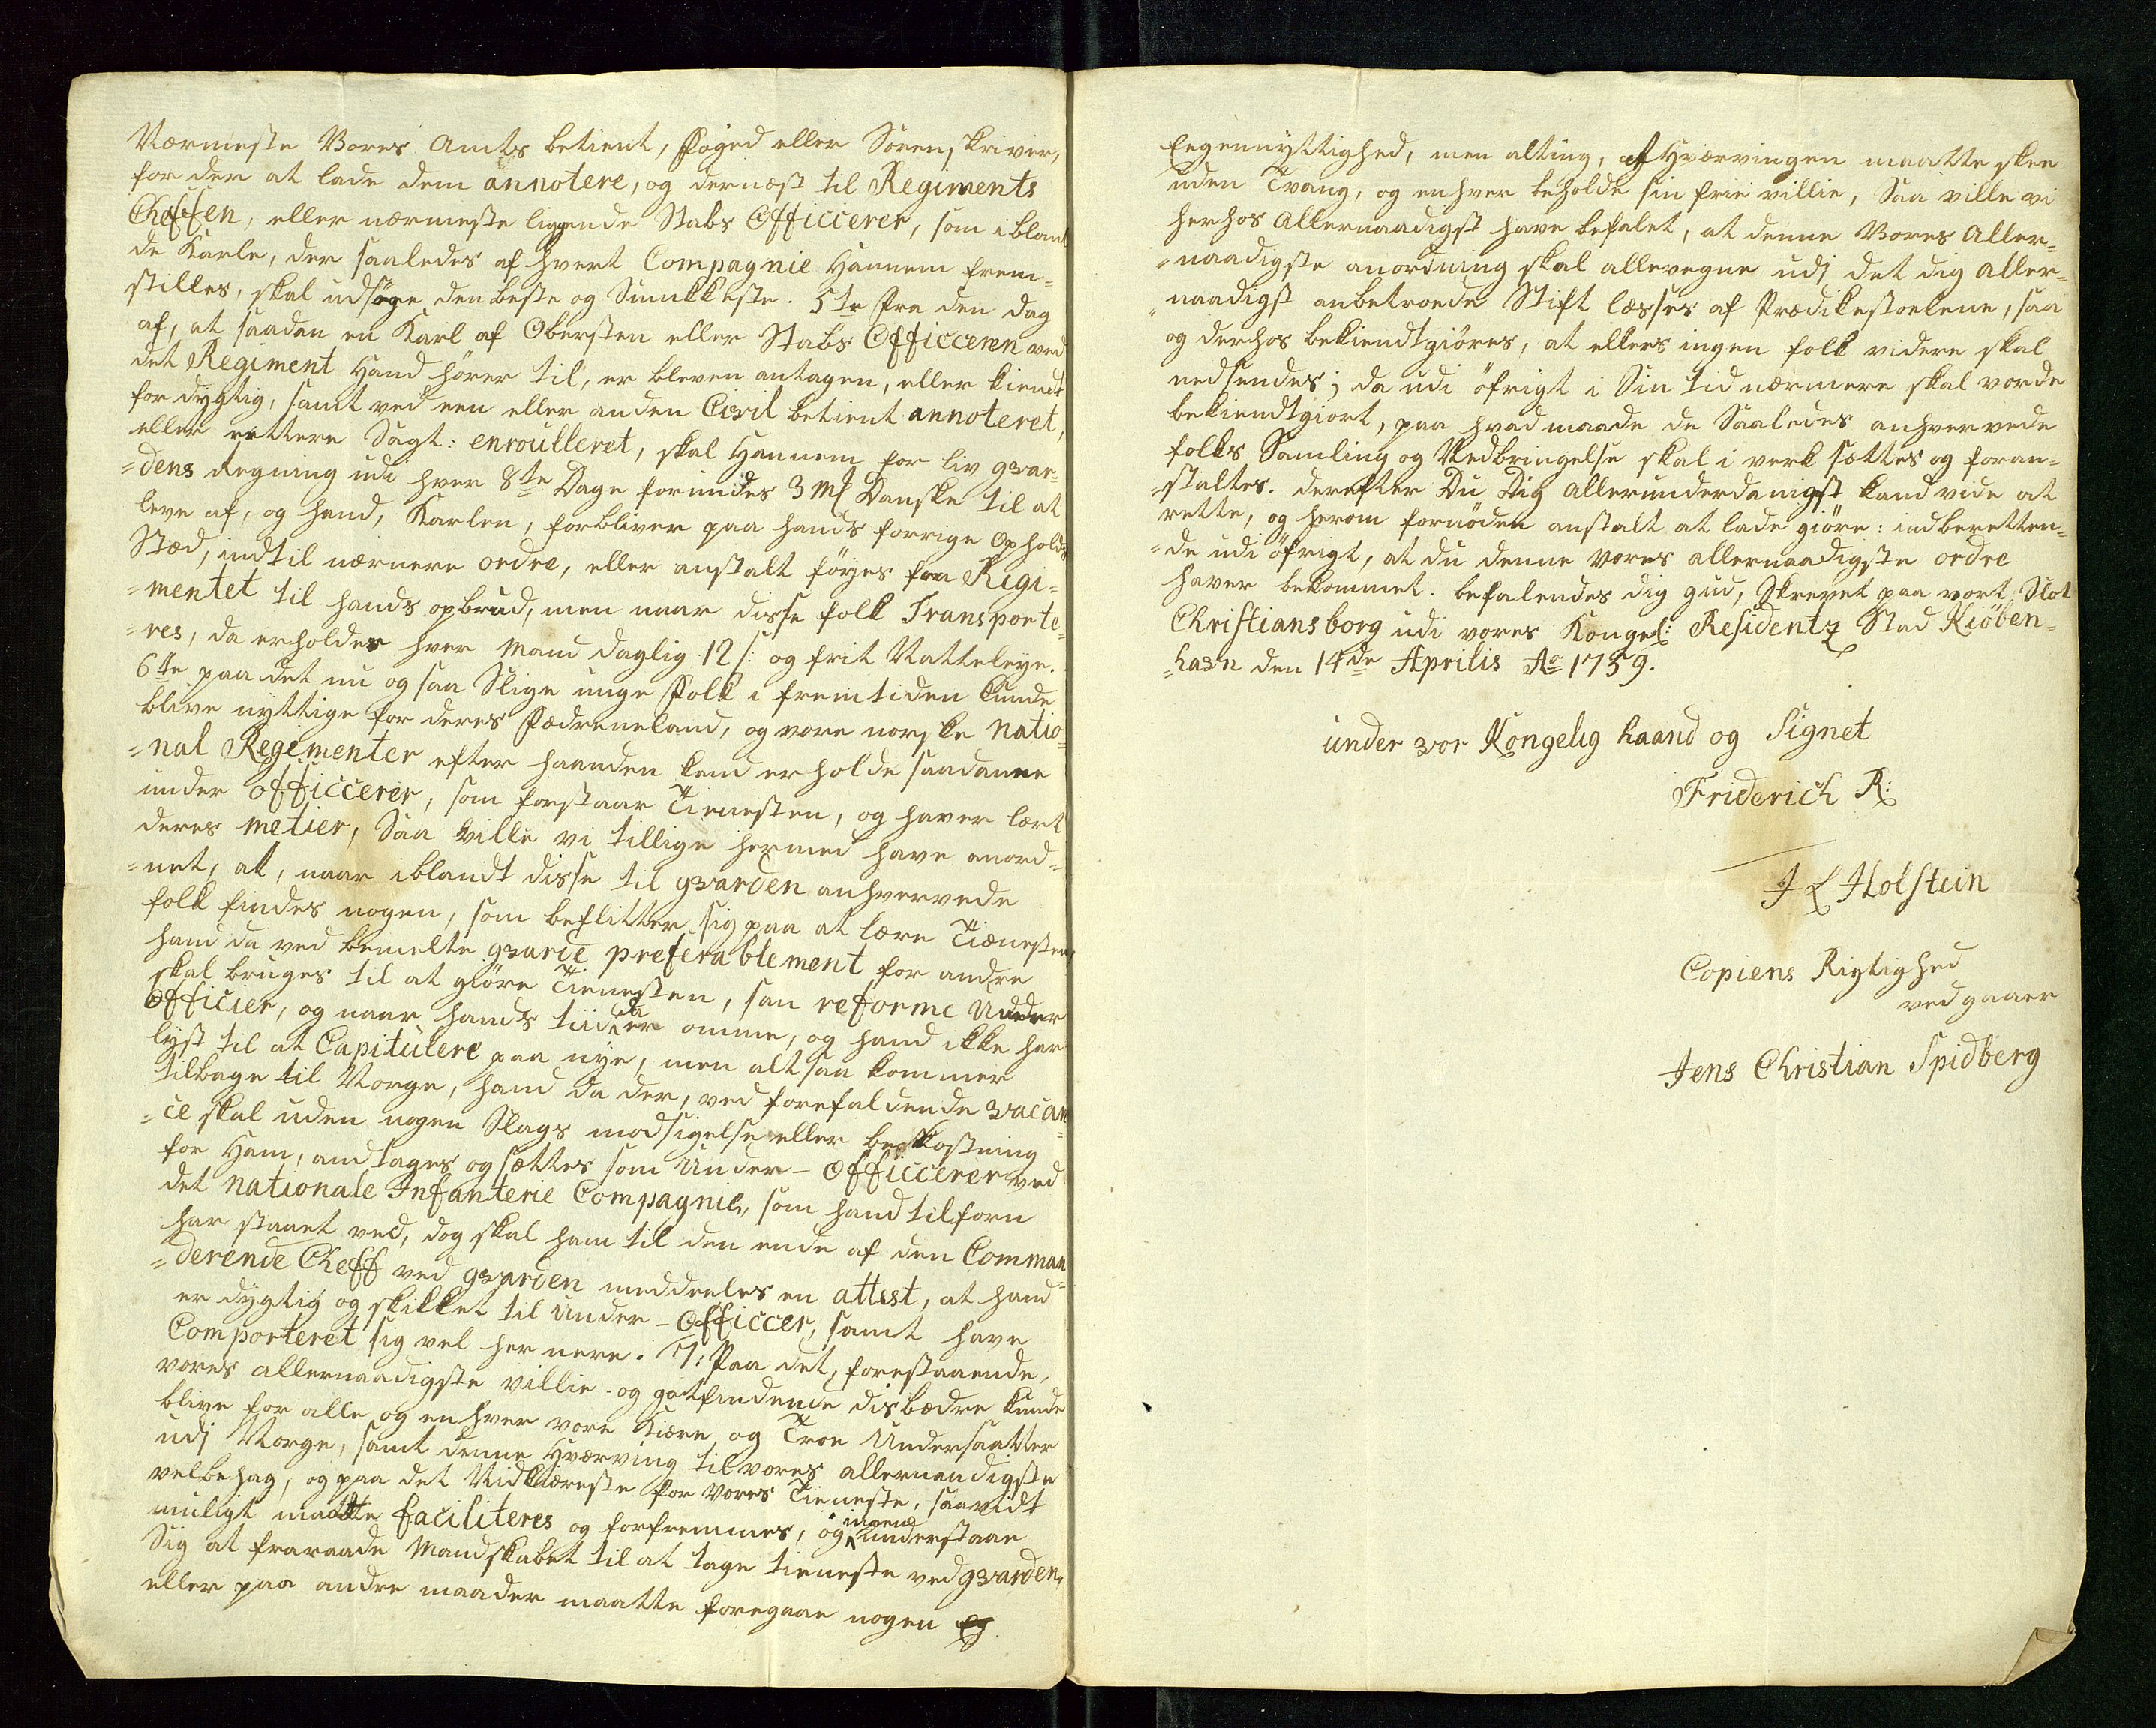 Nærmeste Vores Amts betient, Foged eller Sorenskriver,
for der at lade dem annotere, og dernæst til Regiments
Cheffen, eller nærmeste liggende Stabs Officcerer, som iblant
de Karle, der saaledes af hvert Compagnie Hannem frem-
stilles, skal udsøge den beste og Smukkeste. 5te Fra den dag
af, at saadan en Karl af Obersten eller Stabs Officceren ved
det Regiment Hand hører til, er bleven antagen, eller kiendt
for dygtig, samt ved een eller anden Civil betient annoteret,
eller rettere Sagt: enroulleret, skal Hannem for liv gvar-
=dens Regning udi hver 8te Dage forundes 3 Mk Danske til at
leve af, og hand, Karlen, forbliver paa hands forrige Opholds
Stæd, indtil nærmere ordre, eller anstalt føyes fra Regi-
=mentet til hands opbrud, men naar disse folk Transporte-
=res, da erholder hver Mand daglig 12 s: og frit Natteleye.
6te paa det nu ogsaa Slige unge Folk i fremtiden kunde
blive nyttige for deres Fædreneland, og vore norske natio-
=nal Regementer efter haanden kand erholde saadanne
under officcerer, som forstaar Tienesten, og haver lært
deres metier, Saa ville vi tillige hermed have anord-
=net, at, naar iblandt disse til gvarden anhvervede
folk findes nogen, som beflitter sig paa at lære Tiænesten,
hand da ved bemelte gvarde preferablement for andre
skal bruges til at giöre Tienesten, saa reforme Under
Officier, og naar hands tiid da er omme, og hand ikke har
lyst til at Capitulere paa nye, men altsaa kommer
tilbage til Norge, hand da der, ved forefaldende vacan-
=ce skal uden nogen Slags modsigelse eller bekostning
for Ham, andtages og sættes som Under-Officcerer ved
det nationale Infanterie Compagnie, som hand tilforn
har staaet ved, dog skal ham til den ende af den Comman-
=derende Cheff ved gvarden meddeeles en attest, at hand
er dygtig og skikket til Under-Officcer, samt have
Comporteret sig vel her nere. 7: Paa det, forestaaende,
vores allernaadigste villie og gotfindende disbædre kunde
blive for alle og enhver vore Kiære og Troe Undersaatter
udj Norge, samt denne Hværving til vores allernaadigste
velbehag, og paa det Nidkiæreste for Vores Tieneste, saavidt
muligt maatte faciliteres og forfremmes, og ingen understaae
Sig at fraraade Mandskabet til at tage tieneste ved gvarden,
eller paa andre maader maatte foregaae nogen
Eegennyttighed, men alting, af Hværvingen maatte skee
uden Tvang, og enhver beholde sin frie villie, Saa ville vi
herhos Allernaadigst have befalet, at denne Vores Aller-
=naadigste anordning skal allevegne udj det dig aller-
=naadigst anbetroede Stift læsses af Prædikestoelene, saa
og derhos bekiendtgiöres, at ellers ingen folk videre skal
nedsendes; da udi öfrigt i Sin tid nærmere skal vorde
bekiendtgiort, paa hvad maade de Saaledes anhvervede
folks Samling og Nedbringelse skal i verk sættes og foran-
=staltes. derefter Du Dig allerunderdanigst kand vide at
rette, og herom fornöden anstalt at lade giöre: indberetten-
=de udi öfrigt, at du denne vores allernaadigste ordre
haver bekommet. befalendes dig gud, Skrevet paa vort Slot
Christiansborg udi vores Kongel: Residentz Stad Kiöben-
=havn den 14de Aprilis Ao 1759.
under vor Kongelig haand og Signet
Friderich R:
J L Holstein
Copiens Rigtighed
vedgaaer
Jens Christian Spidberg